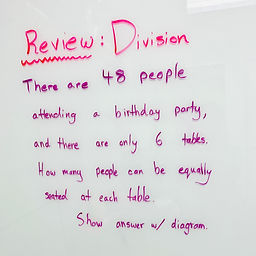 Review: Division
There are 48 people
attending a birthday party,
and there are only 6 tables.
How many people can be equally
seated at each table.
Show answer w/ diagram.